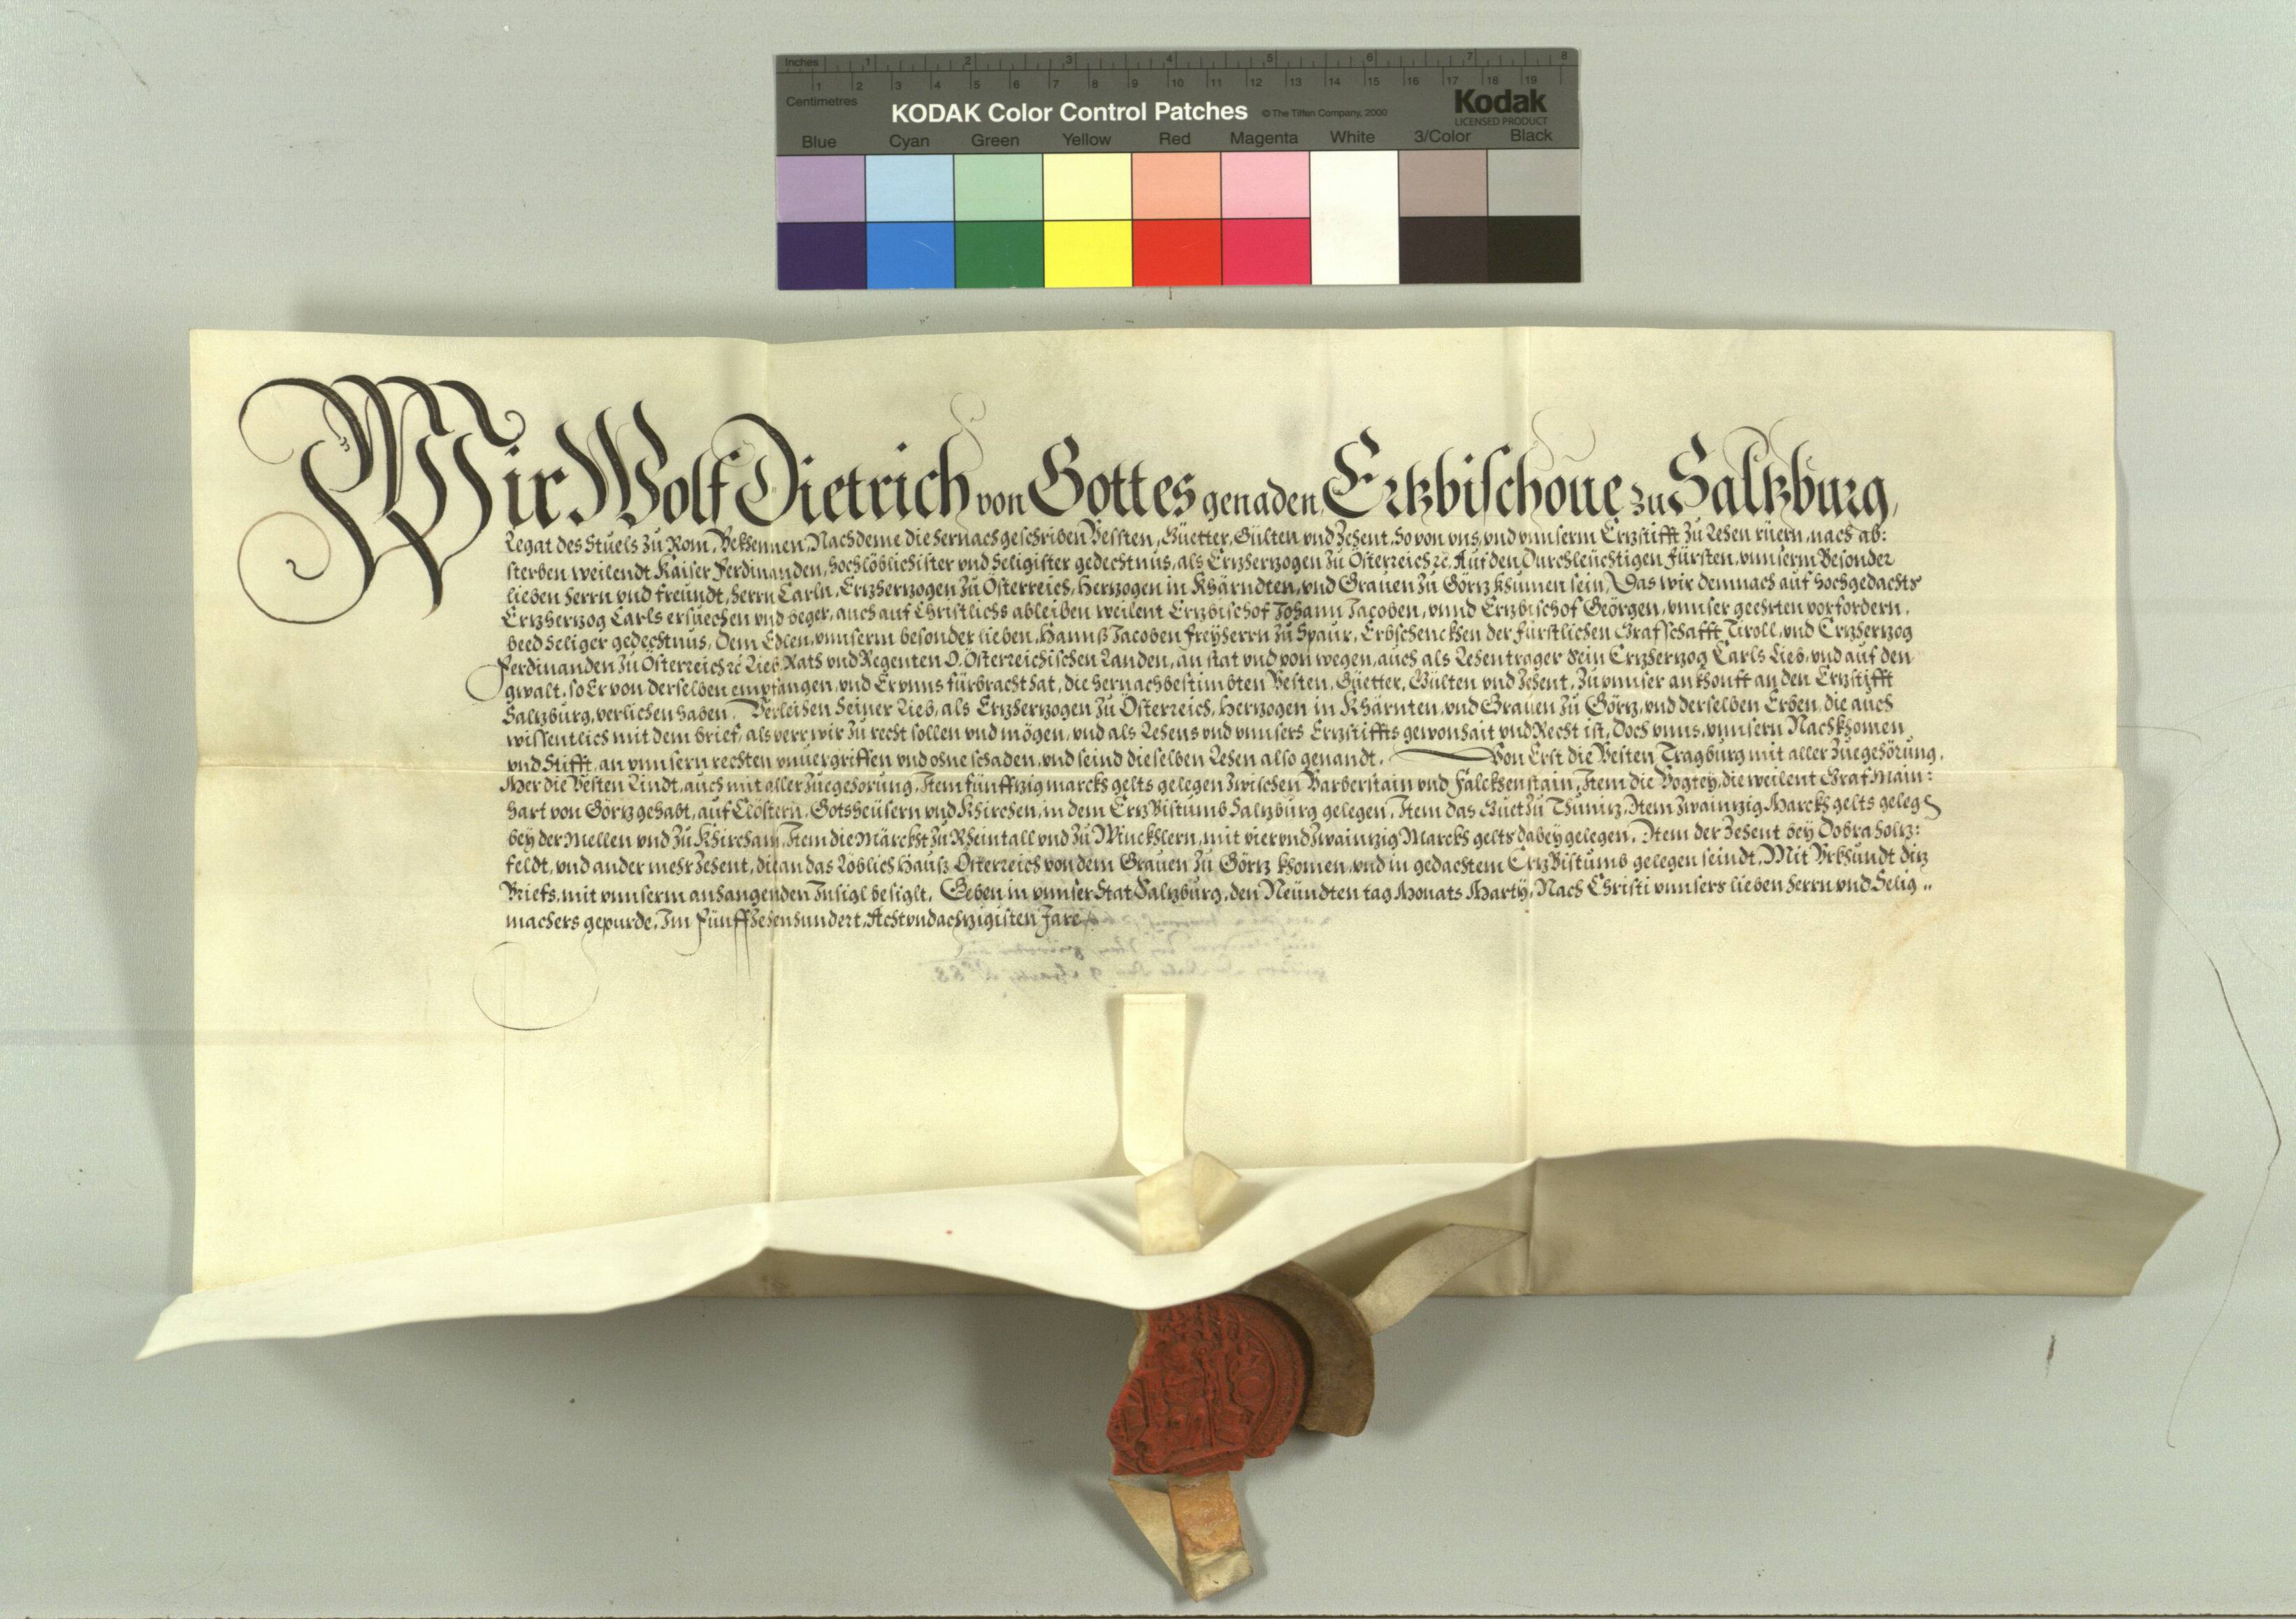 Inches 1 2 3 4 5 6 7 8
1 2 3 4 5 6 7 8 9 10 11 12 13 14 15 16 17 18 19
Centimetres
KODAK Color Control Patches © The Tiffen Company, 2000 Kodak
LICENSED PRODUCT
Blue Cyan Green Yellow Red Magenta White 3/Color Black
Wir Wolf Dietrich von Gottes genaden Ertzbischoue zu Saltzburg,
Legat des Stuels zu Rom, Bekhennen, Nachdeme die hernach geschriben Vessten, Güetter, Gülten vnd Zehent, So von vns, vnd vnnserm Erzstifft zu Lehen rüern, nach ab:
sterben weilendt Kaiser Ferdinanden, hochlöblichister vnd Seligister gedechtnus, als Erzherzogen zu Österreich ꝛc. Auf den Durchleüchtigen Fürsten, vnnserm Besonder
lieben herrn vnd freundt, herrn Carln, Erzherzogen zu Österreich, Herzogen in Khärndten, vnd Grauen zu Görz khumen sein, Das wir demnach auf hochgedachts
Erzherzog Carls ersuechen vnd beger, auch auf Christlichs ableiben weilent Erzbischof Johann Jacoben, vnnd Erzbischof Geörgen, vnnser geehrten vorfordern,
beed Seliger gedechtnus, dem Edlen, vnnserm besonder lieben, Hannß Jacoben Freyherrn zu Spaur, Erbschenckhen der Fürstlichen Grafschafft Tiroll, vnd Erzherzog
Ferdinanden zu Österreich ꝛc Lieb, Rath vnd Regenten O. Österreichischen Landen, an stat vnd von wegen, auch als Lehentrager sein Erzherzog Carls Lieb, vnd auf den
gwalt, so Er von derselben empfangen, vnd Er vnns fürbracht hat, die hernachbestimbten Vesten, Güetter, Gülten vnd Zehent, zu vnnser ankhonfft an den Erzstifft
Salzburg, verlichen haben. Verleihen Seiner Lieb, als Erzherzogen zu Österreich, Herzogen in Khärnten, vnd Grauen zu Görz, vnd derselben Erben, die auch
wissentlich mit dem brief, als verr wir zu recht sollen vnd mögen, vnd als Lehens vnd vnnsers Erzstiffts gewonhait vnd Recht ist, Doch vnns, vnnsern Nachkhomen
vnd Stifft, an vnnsern rechten vnuergriffen vnd ohne schaden, vnd seind dieselben Lehen also genandt. Von Erst die Vesten Tragburg mit aller zuegehörung,
Mer die Vesten Lindt, auch mit aller zuegehörung, Item fünffzig marckh gelts gelegen zwischen Barberstain vnd Falckhenstain, Item die Vogtey, die weilent Graf Main:
hart von Görz gehabt, auf Clöstern, Gotsheüsern vnd Khirchen, in dem Erz Bistumb Salzburg gelegen, Item das Guet zu Thuniz, Item zwainzig Marckh gelts
bey der Mellen vnd zu Khirchaim, Item die Märckht zu Rheintall vnd zu Winckhlern, mit vier vnd zwainzig Marckh gelts dabey gelegen, Item der Zehent bey Dobra holz:
feldt, vnd ander mehr Zehent, die an das Löblich Hauß Österreich von dem Grauen zu Görz khomen, vnd in gedachtem Erz Bistumb gelegen seindt, Mit Vrkhundt diz
Briefs, mit vnnserm anhangenden Insigl besiglt, Geben in vnnser Stat Salzburg, den Neündten tag Monats Marty, Nach Christi vnnsers lieben herrn vnd Selig
machers gepurde, Im Fünffzehenhundert, Acht vnd achzigisten Jare